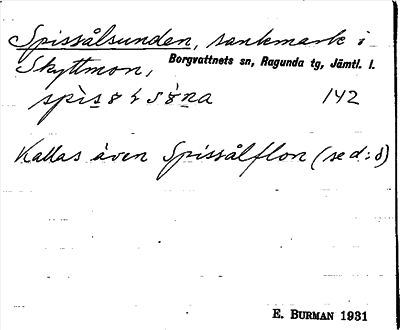 Spissålsunden, sankmark i
Skyttmon, Borgvattnets sn, Ragunda tg, Jämtl. l.
142
Kallas även Spissålflon (se d:o)
E. BURMAN 1931